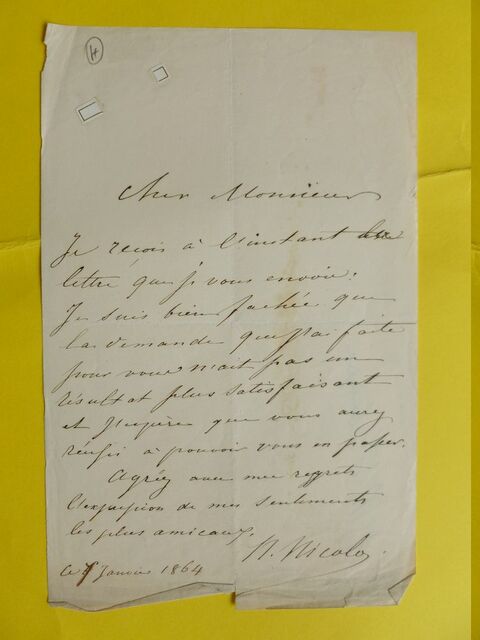 4
Cher Monsieur
Je reçois à l'instant la
lettre que j vous envoie.
Je suis bien fachée que
la demande que j'ai faite
pour vous n'ait pas un
résultat plus satisfaisant
et j'espère que vous aurez
reussi à pouvoir vous en passer.
Agréez avec mes regrets
l'expression de mes sentiments
les plus amicaux.
N. Nicolo
ce Janvier 1864